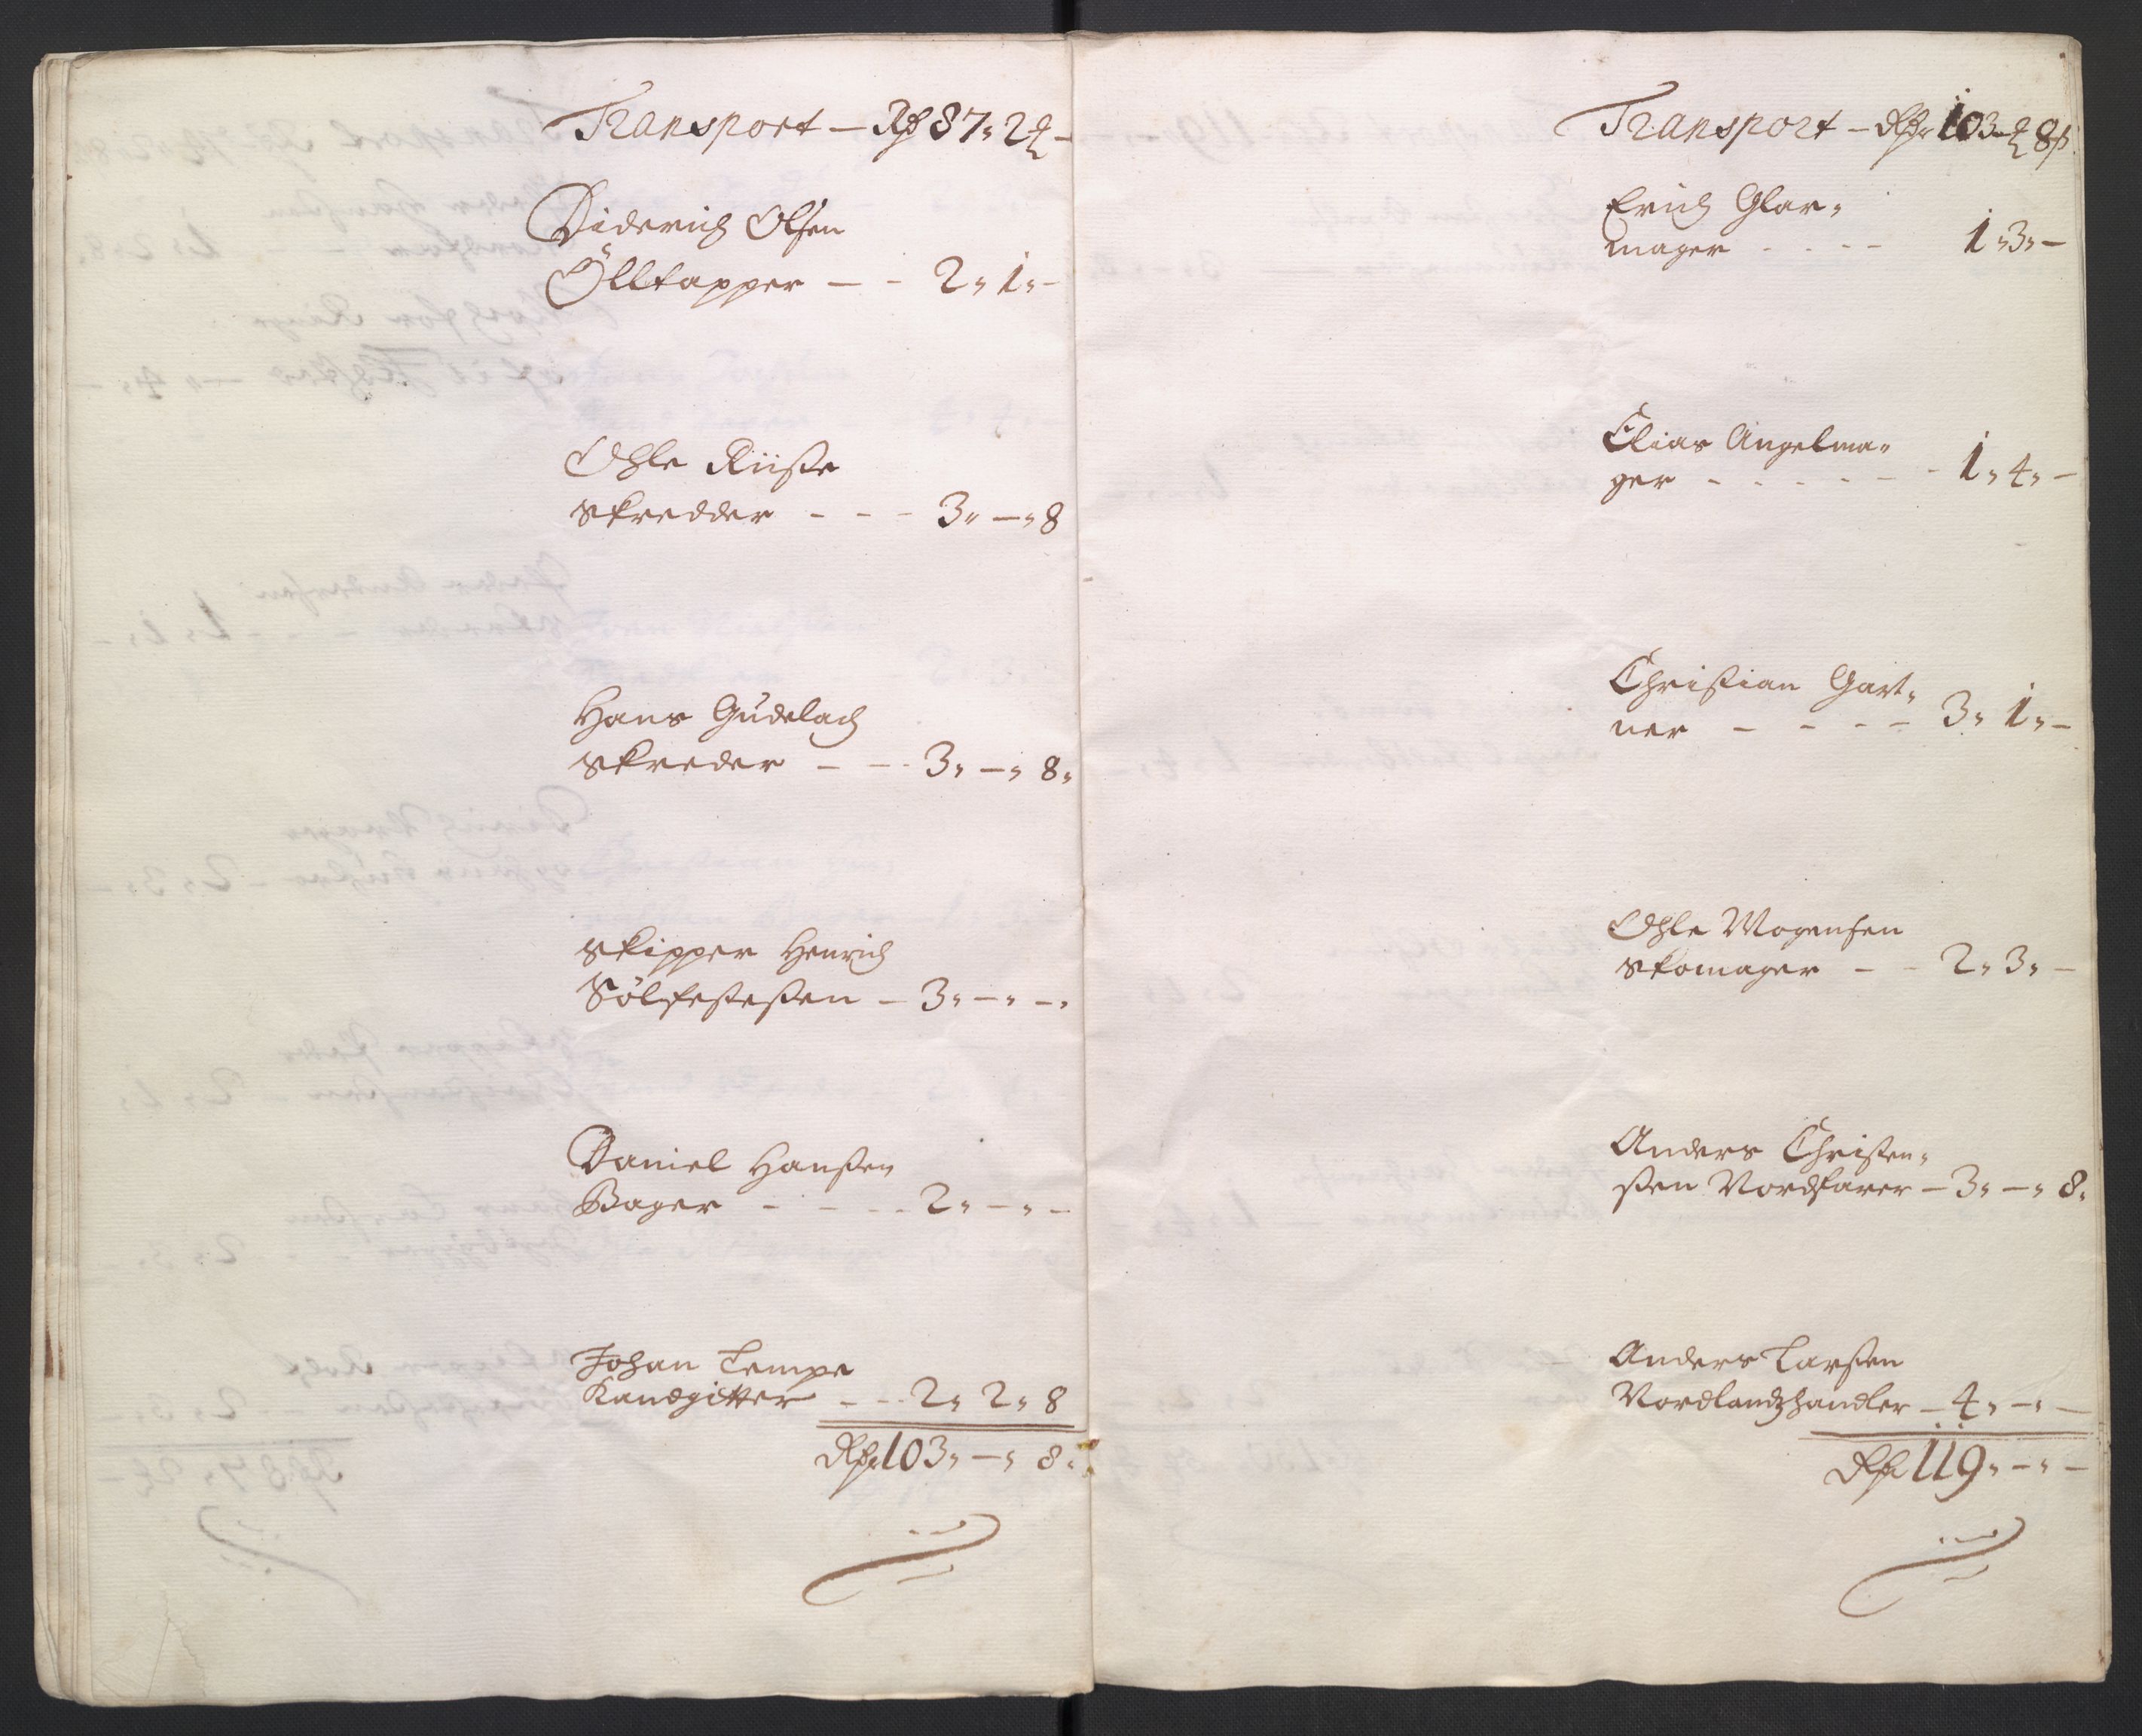 Transport — Rd 87" 2 —
Diderich Olsen
Ölltapper — - 2" 1" -
Ohle Riise
Skredder - - - 3" —" 8
Hans Gudelach
Skreder — - - 3" —" 8"
Skipper Henrich
Sölfestesen — 3" —" —"
Daniel Hansen
Bager - - - - 2" —" —
Johan Tempe
Kandgitter - - - 2" 2" 8
Rdr 103" —" 8"
Transport — Rdr 103 - 8 s
Erich Glar"
mager - - - - 1" 3" —
Elias Angelma"
ger - - - - - - 1" 4" —
Christian Gart"
ner — - - - 3" 1" —
Ohle Mogensen
Skomager — - 2" 3" —
Anders Christen"
sen Nordfarer — 3" —" 8"
Anders Larsen
Nordlandshandler — 4" —" —
Rdr 119" —" —